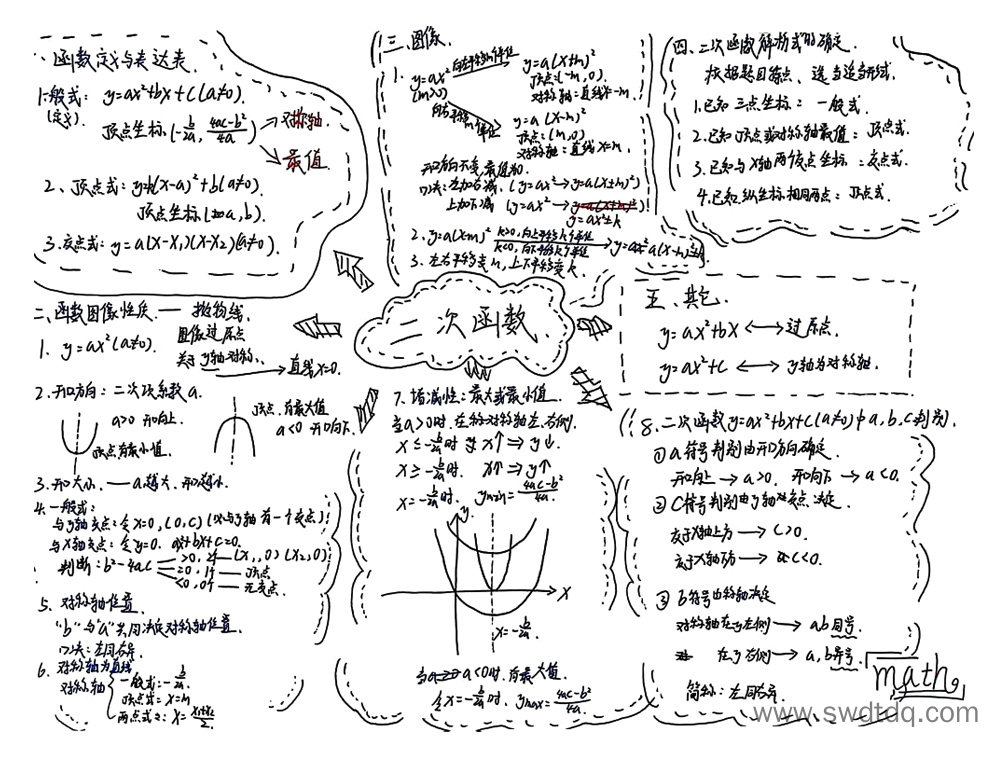 一、函数定义与表达表
1.一般式: y=ax²+bx+c(a≠0).
(定义)
顶点坐标(-b/2a, 4ac-b²/4a)
对称轴
最值
2、顶点式: y=h(x-a)²+b(a≠0).
顶点坐标(a,b).
3.交点式: y=a(x-x₁)(x-x₂)(a≠0)
二、函数图像性质 — 抛物线.
1. y=ax²(a≠0).
图像过原点
关于y轴对称、 → 直线x=0.
2.开口方向: 二次项系数a.
a>0 开口向上
顶点有最小值.
顶点有最大值
a<0 开口向下.
3.开口大小. — a越大,开口越小.
4.一般式:
与y轴交点: 令x=0,(0,c)(必与y轴有一个交点)
与x轴交点: 令y=0. ax+bx+c=0.
判断: b²-4ac
>0, 2个 — (x₁,0)(x₂,0)
=0, 1个 — 顶点
<0, 0个 — 无交点.
5. 对称轴位置.
"b"与"a"共同决定对称轴位置.
口决:左同右异
6. 对称轴为直线
对称轴
一般式: -b/2a.
顶点式: x=m
两点式: x=x₁+x₂/2.
三、图像.
1. y=ax² 向左平移m个单位 y=a(x+m)²
(m>0)
顶点:(-m,0).
对称轴=直线x=-m.
向右平移m个单位
y=a(x-m)²
顶点:(m,0)
对称轴=直线x=m.
开口方向不变,最值初
口决:左加右减. (y=ax² → y=a(x±m)²)
上加下减 (y=ax² →
y=ax²±k
2. y=a(x-m)² k>0,向上平移k个单位
k<0,向下平移k个单位
y=a(x-m)²±k
3. 左右平移变m,上下平移变k.
二次函数
7. 增减性: 最大或最小值
当a>0时.在称对称轴左、右侧.
x≤-b/2a时 y x↑⇒y↓.
x≥-b/2a时. x↑⇒y↑
x=-b/2a时. ymin=4ac-b²/4a.
y.
x
x=-b/2a.
当a<0时.有最大值
令x=-b/2a时. ymax=4ac-b²/4a.
四、二次函数解析式的确定.
根据题目条点、适当选择式.
1.已知三点坐标: 一般式.
2.已知顶点或对称轴最值: 顶点式.
3.已知与x轴两交点坐标: 交点式.
4.已知纵坐标相同两点: 顶点式.
五、其它.
y=ax²+bx ⟷ 过原点.
y=ax²+c ⟷ y轴为对称轴.
8. 二次函数y=ax²+bx+c(a≠0)中a、b、c判别
① a符号判别由开口方向确定.
开口向上 → a>0. 开口向下 → a<0.
② C符号判别由y轴交点决定
交于x轴上方 → c>0.
交于x轴下方 → c<0.
③ b符号由称轴决定
对称轴在y左侧 → ab同号.
在y右侧 → a,b异号.
简称: 左同右异.
math.
www.swdtdq.com